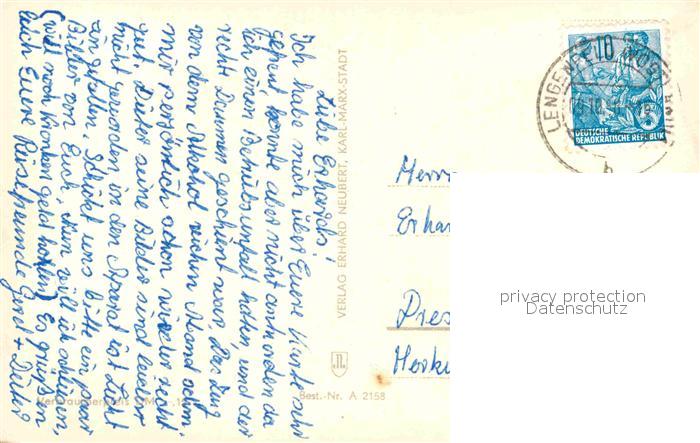 Liebe Erhards!
Ich habe mich über Eure Karte sehr
gefreut konnte aber nicht antworten da
ich einen Betriebsunfall hatte, und der
recht Daumen geschient war. Das Zeug
von dem Alkohol reichen Abend
mir persönlich schon wieder recht
gut. Dieter seine Bilder sind leider
nicht geworden in den Apparat ist Licht
ein gefallen. Schickt uns bitte ein paar
Bilder von Euch. Nun will ich schließen,
(will noch Kranken geld holen) Es grüßen
Euch Eure Reisefreunde Gerel + Dieter
VERLAG ERHARD NEUBERT, KARL-MARX-STADT
Verbraucherpreis DM
Best.-Nr. A 2158
10
5
DEUTSCHE
DEMOKRATISCHE REPUBLIK
LENGENFELD (VOGTL)
b
Herrn
Erhar
Dres
privacy protection
Datenschutz